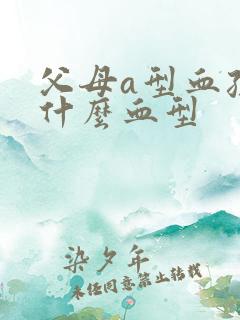 父母a型血孩
什麼血型
染夕年
未经同意禁止转载